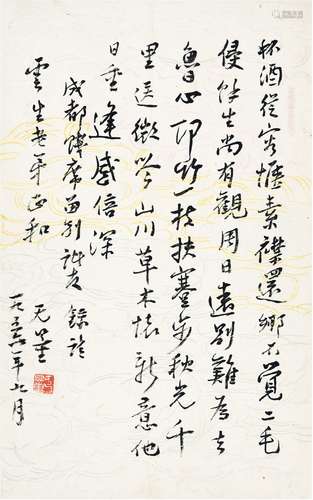 杯酒從容愜素襟還鄉不覺二毛
侵餘生尚有觀周日遠別難為去
魯心邛竹一枝扶蹇步秋光千
里送微吟山川草木懷新意他
日重逢感倍深
成都餞席留別諸友 錄
雲生老弟正和
无量
一九五六年七月